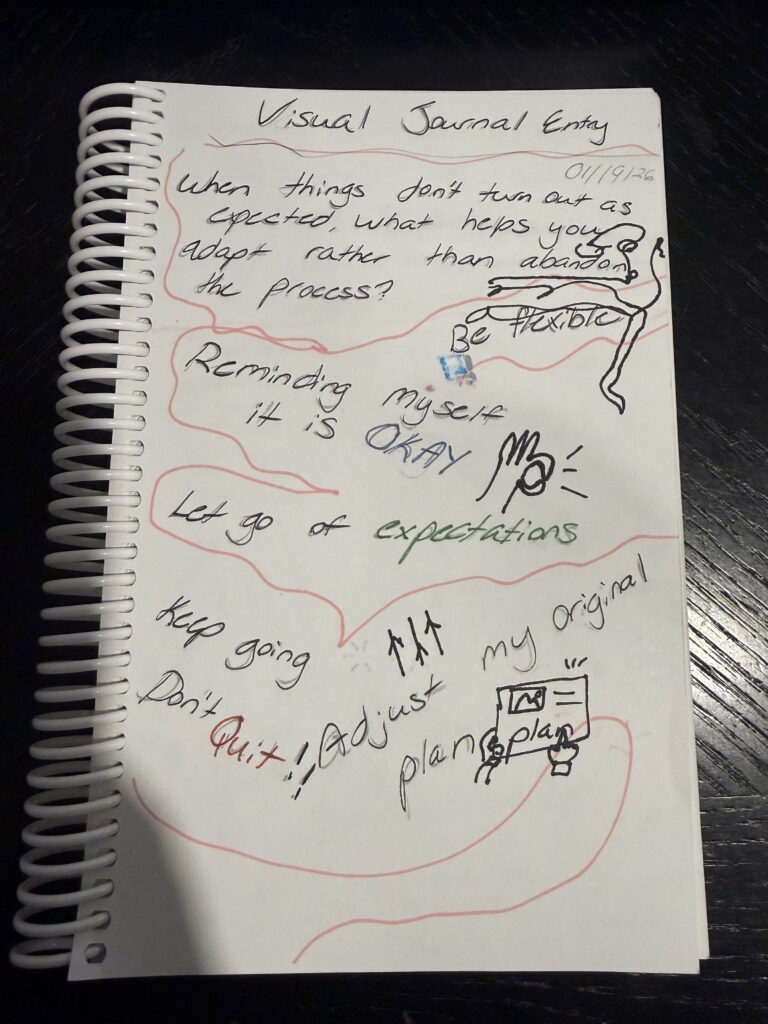 Visual Journal Entry
01/19/26
When things don't turn out as
expected, what helps you
adapt rather than abandon
the process?
Be flexible
Reminding myself
it is OKAY
Let go of expectations
Keep going
Don't Quit!!
Adjust my original
plan
plan